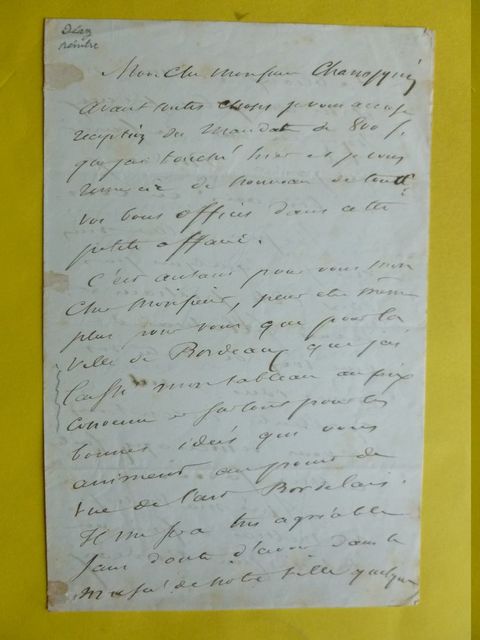 Diaz
peintre
Mon cher monsieur
avant toutes choses je vous accuse
reception du mandat de 800 f,
que j'ai touché hier et je vous
remercie de nouveau de toutes
vos bons offices dans cette
petite affaire.
C'est autant pour vous mon
cher monsieur, peut etre meme
plus pour vous que pour la
ville de Bordeaux que j'ai
laissé mon tableau au prix
convenu et surtout pour les
bonnes ideés qui vous
animent au point de
vue de l'art Bordelais.
Il me sera tres agréable
sans doute d'avoir dans le
musée de notre ville quelque